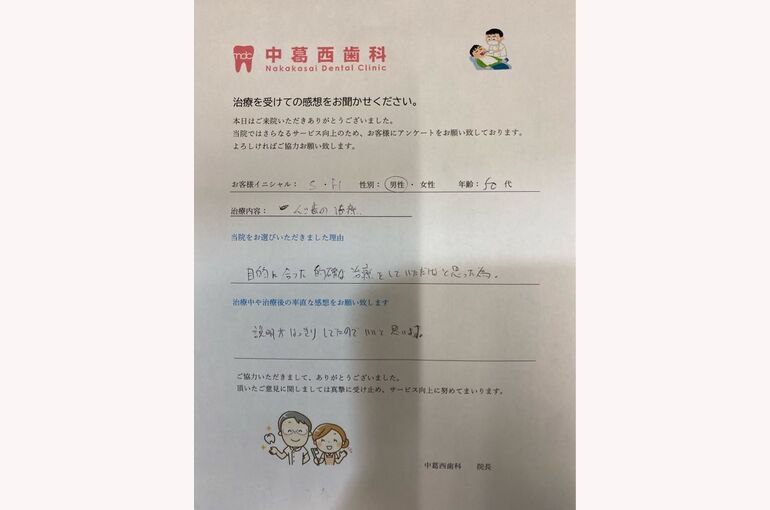 ndc 中葛西歯科
Nakakasai Dental Clinic
治療を受けての感想をお聞かせください。
本日はご来院いただきありがとうございました。
当院ではさらなるサービス向上のため、お客様にアンケートをお願い致しております。
よろしければご協力お願い致します。
お客様イニシャル: S・H 性別: 男性・女性 年齢: 50代
治療内容: 入れ歯の治療.
当院をお選びいただきました理由
目的に合った的確な治療をしていただけると思った為。
治療中や治療後の率直な感想をお願い致します
説明がはっきりしてたのでいいと思います。
ご協力いただきまして、ありがとうございました。
頂いたご意見に関しましては真摯に受け止め、サービス向上に努めてまいります。
中葛西歯科 院長